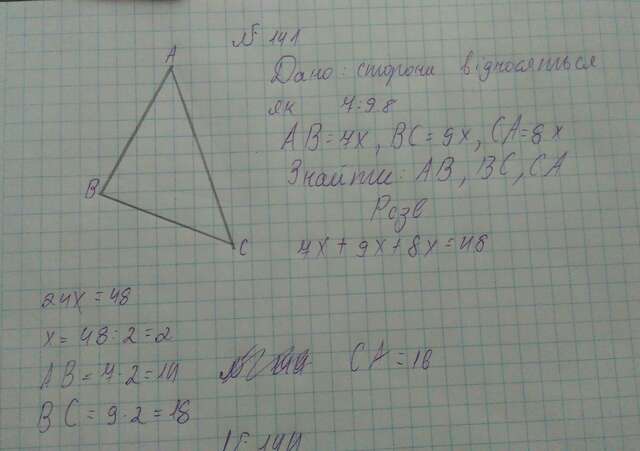 № 141
A
Дано: сторони відносяться
як 7:9:8
AB=7x, BC=9x, CA=8x
Знайти: AB, BC, CA
B
Розв
C
7x+9x+8x=48
24x=48
x=48:2=2
AB=7·2=14
CA=16
BC=9·2=18
№ 144